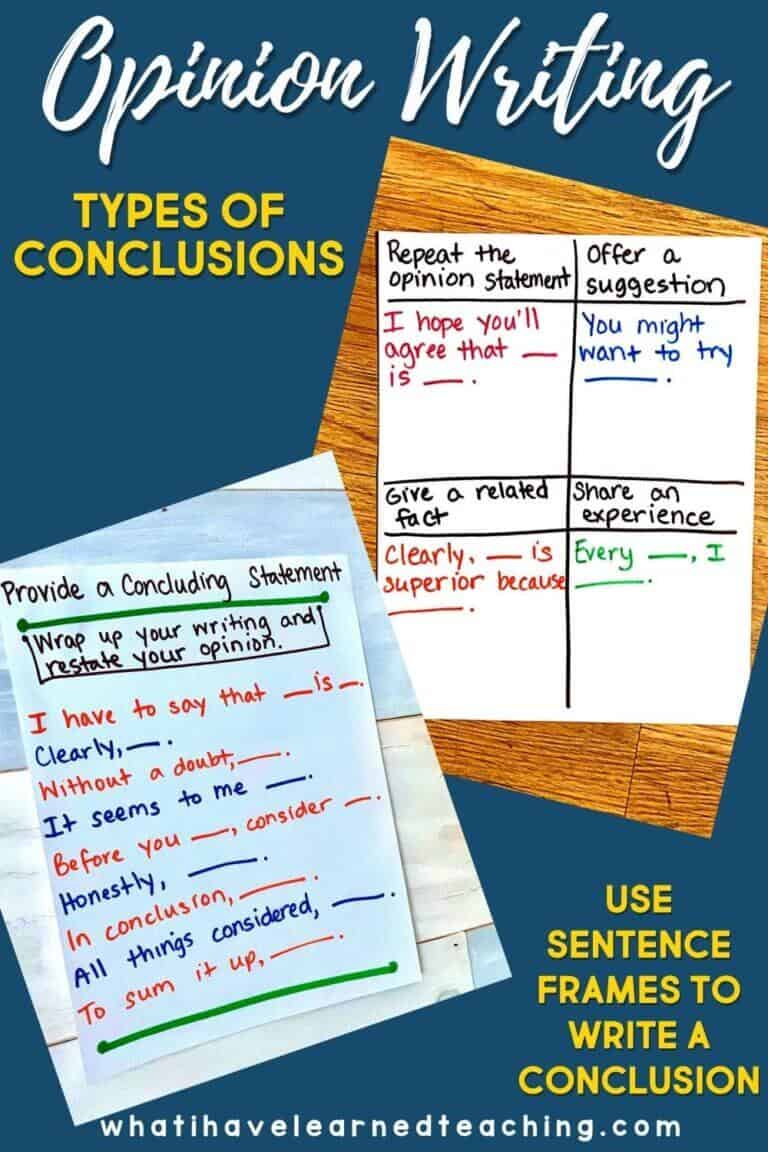 Opinion Writing
TYPES OF
CONCLUSIONS
Repeat the
opinion statement
I hope you'll
agree that __
is __.
Offer a
suggestion
You might
want to try
____.
Give a related
fact
Clearly, __ is
superior because
____.
Share an
experience
Every __, I
____.
Provide a Concluding Statement
Wrap up your writing and
restate your opinion.
I have to say that __ is __.
Clearly, __.
Without a doubt, __.
It seems to me __.
Before you __, consider __.
Honestly, ____.
In conclusion, ____.
All things considered, ___.
To sum it up, ____.
USE
SENTENCE
FRAMES TO
WRITE A
CONCLUSION
whatihavelearnedteaching.com